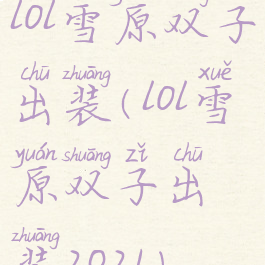 lol雪原双子
chū zhuāng xuě
出装(lol雪
yuán shuāng zǐ chū
原双子出
zhuāng
装2021)